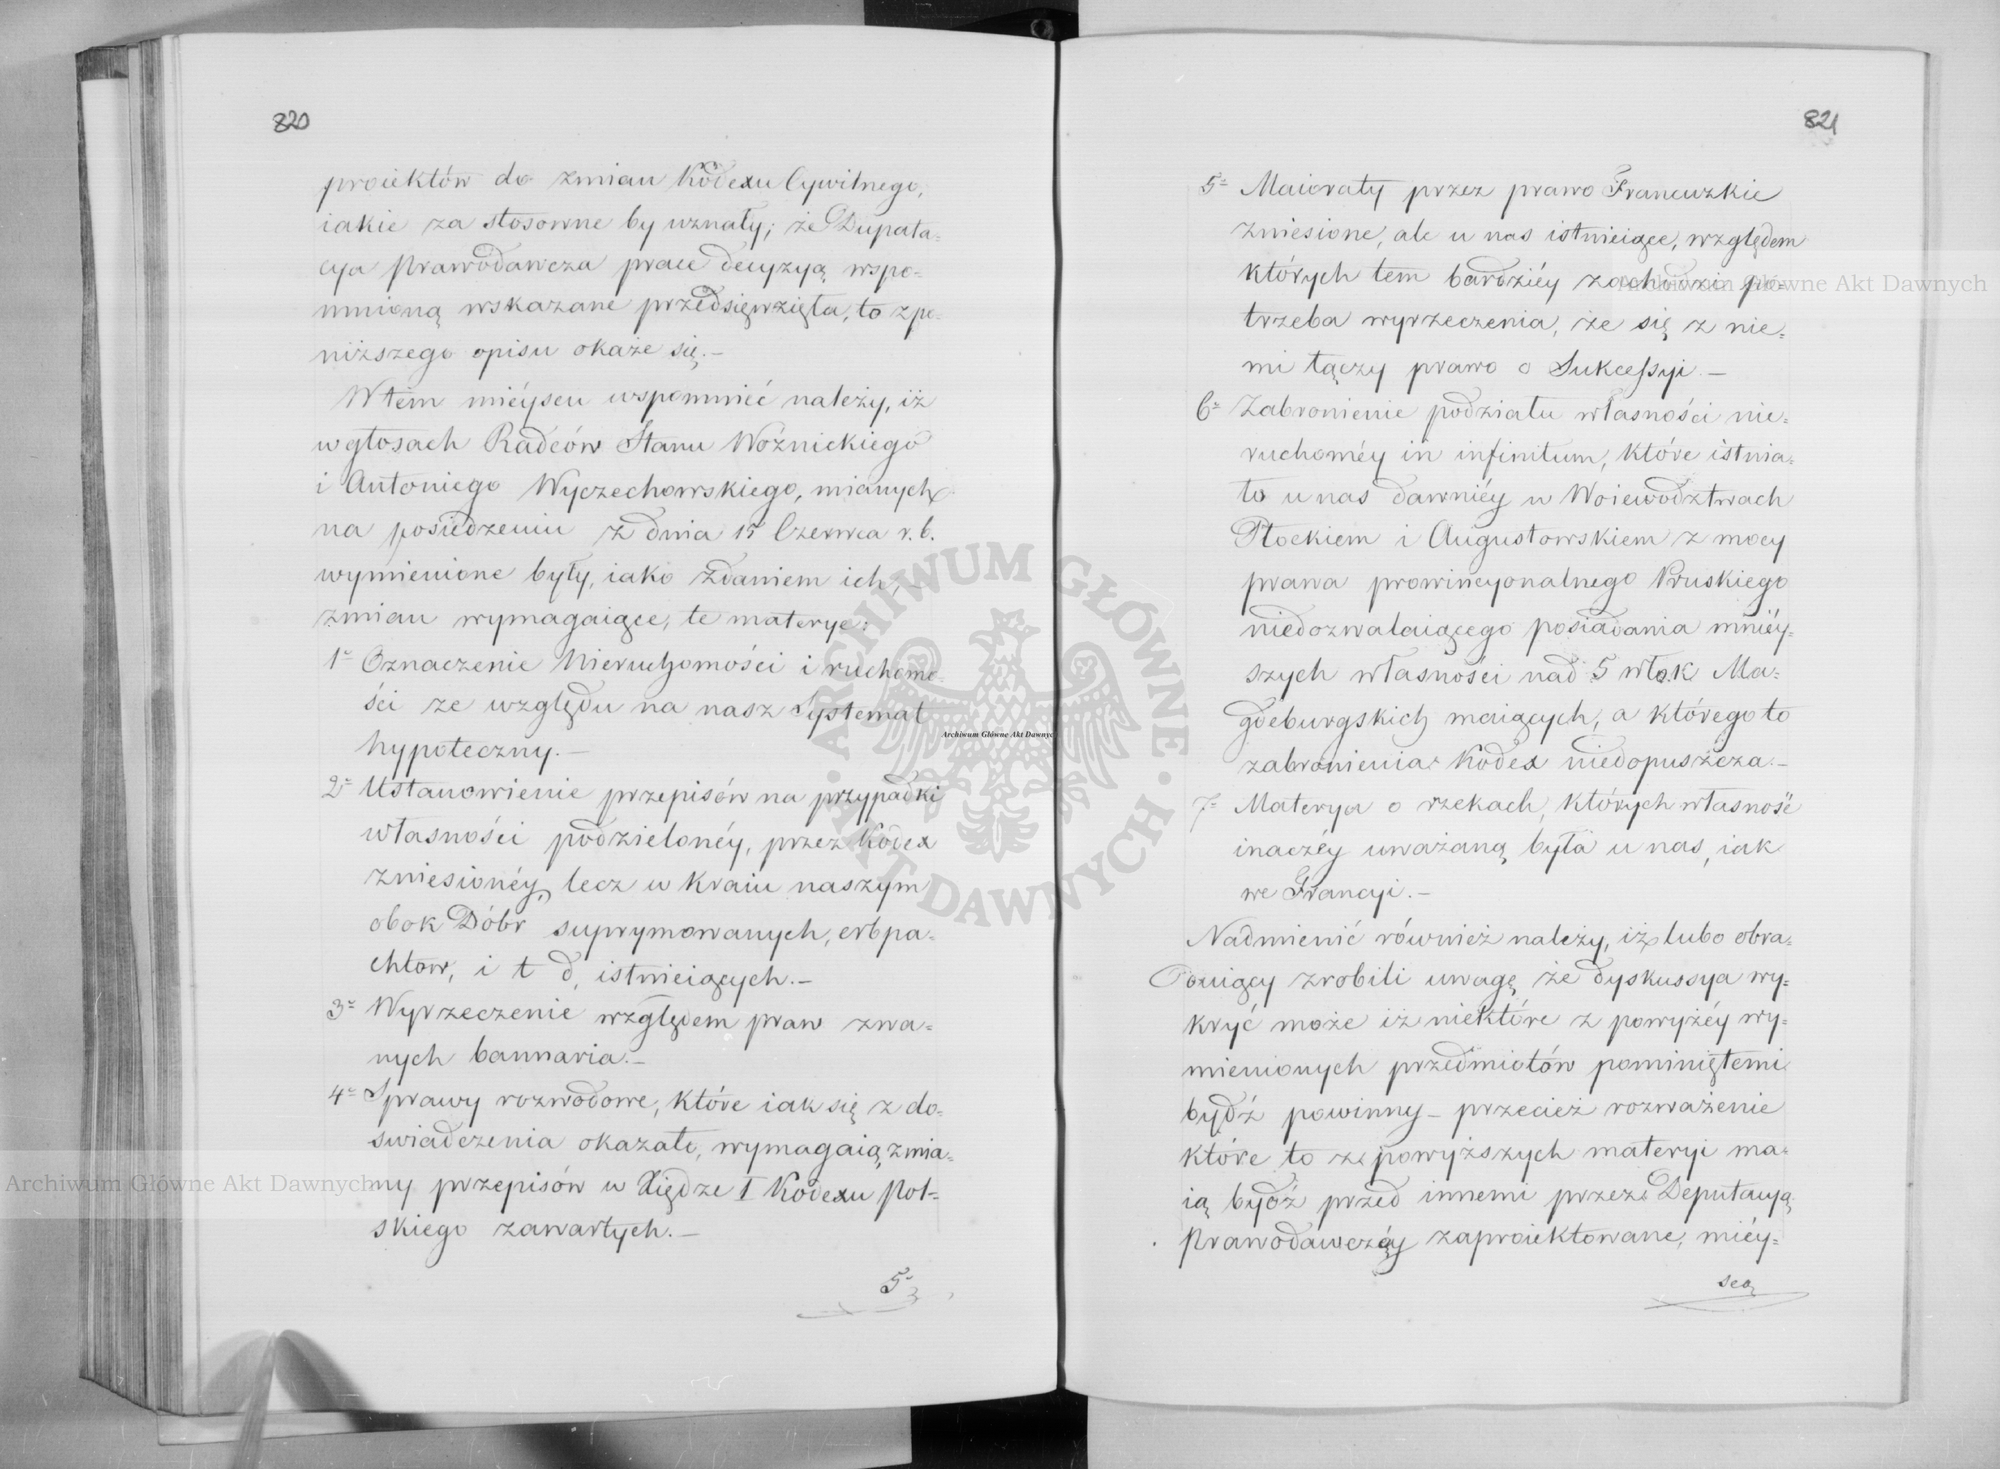 820
proiektów do zmian Kodexu Cywilnego,
iakie za stosowne by uznały; że Duputa-
cya Prawodawcza prace decyzyą wspo-
mnioną wskazane przedsięwzięła, to z po-
niższego opisu okaże się.—
W tem mieyscu wspomnieć należy, iż
w głosach Radców Stanu Woźnickiego
i Antoniego Wyczechowskiego, mianych
na posiedzeniu z dnia 15 Czerwca r. b.
wymienione były, iako zdaniem ich,—
zmian wymagaiące, te materye:
1e Oznaczenie Nieruchomości i ruchomo-
ści ze względu na nasz Systemat
hypoteczny.—
2e Ustanowienie przepisów na przypadki
własności podzielonéy, przez Kodex
zniesionéy, lecz w Kraiu naszym
obok Dóbr suprymowanych, erbpa-
chtow, i t d, istnieiących.—
3e Wyrzeczenie względem praw zwa-
nych bannaria.—
4e Sprawy rozwodowe, które iak się z do-
swiadczenia okazało, wymagaią zmia-
ny przepisów w Xiędze I Kodexu Pol-
skiego zawartych.—
5e
821
5e Maioraty przez prawo Francuzkie
zniesione, ale u nas istnieiące, względem
których tem bardziéy zachodzi po-
trzeba wyrzeczenia, że się z nie-
mi łączy prawo o Sukcessyi.—
6e Zabronienie podziału własności nie-
ruchoméy in infinitum, które istnia-
ło u nas dawniéy w Woiewództwach
Płockiem i Augustowskiem z mocy
prawa prowincyonalnego Pruskiego
niedozwalaiącego posiadania mniéy-
szych własności nad 5 włok Ma-
gdeburgskich maiących, a którego to
zabronienia Kodex niedopuszcza.—
7e Materya o rzekach, których własność
inaczéy uważaną była u nas, iak
we Francyi.—
Nadmienić również należy, iż lubo obra-
duiący zrobili uwagę że dyskussya wy-
kryć może iż niektóre z powyżéy wy-
mienionych przedmiotów pominiętemi
bydź powinny— przecież rozważenie
które to z powyższych materyi ma-
ią bydź przed innemi przez Deputacyą
Prawodawczą zaproiektowane, miéy-
sca
Archiwum Główne Akt Dawnych
Archiwum Główne Akt Dawnych
Archiwum Główne Akt Dawnych
ARCHIWUM GŁÓWNE · AKT DAWNYCH ·